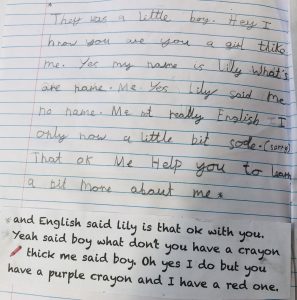 *
They was a little boy. Hey I
know you are you a girl like
me. Yes my name is Lilly what's
are name. Me. Yes Lily said me
no name. Me nt really English I
only now a little bit sode. (sorry)
That ok Me Help you to learn
a bit more about me *
*and English said lily is that ok with you.
Yeah said boy what dont you have a crayon
thick me said boy. Oh yes I do but you
have a purple crayon and I have a red one.